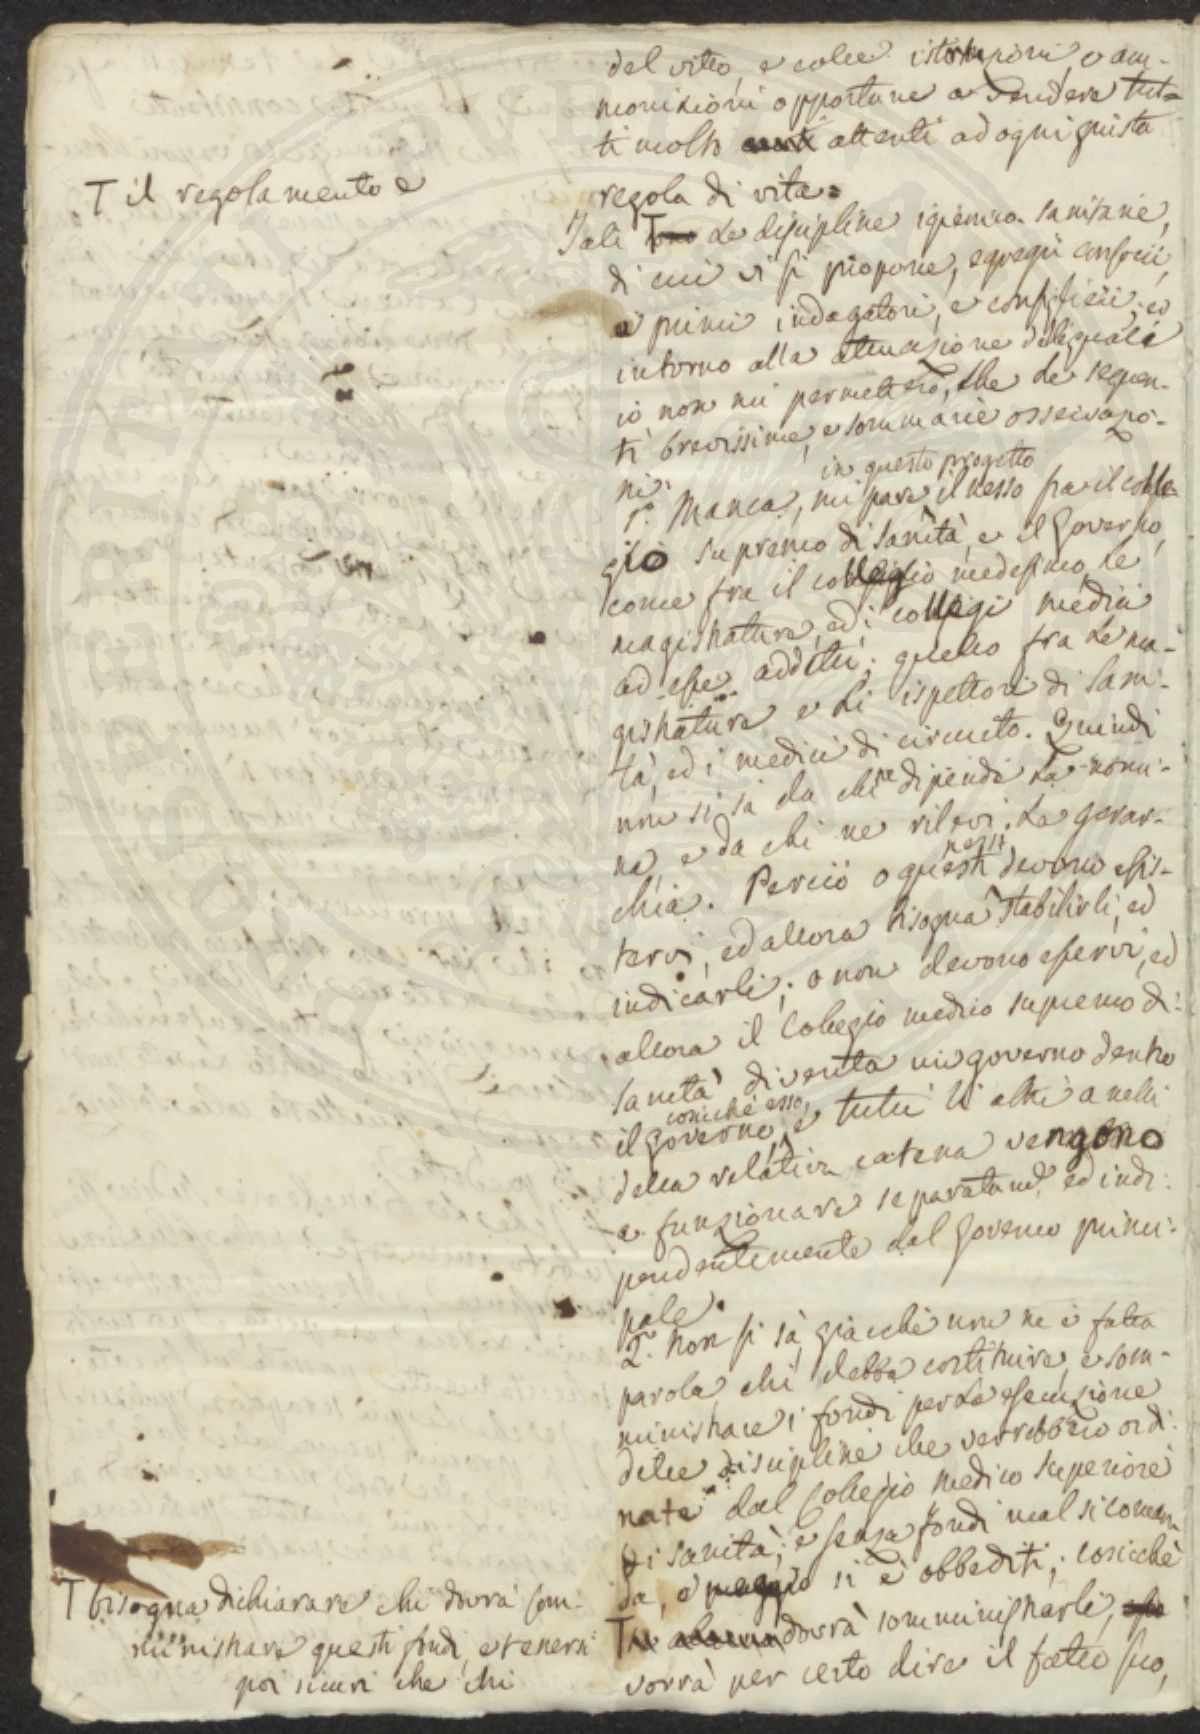 del vitto, e colle istruzioni, o am-
monizioni opportune a rendere tut-
ti molto attenti ad ogni giusta
regola di vita.
T il regolamento e
Tali T le discipline igienico-sanitarie,
di cui vi si propone, egregii consocii,
primi indagatori, e ed
intorno alla attuazione delle quali
io non mi permetterò, che le seguen-
ti brevissime, e sommarie osservazio-
ni.
in questo progetto
1°. Manca, mi pare, il nesso fra il colle-
gio supremo di sanità, e il Governo,
come fra il collegio medesimo, le
magistrature, ed i collegi medici
ad esse additti; quello fra le ma-
gistrature e li ispettori di sani-
tà, ed i medici di circuito. Quindi
non si sa da chi ne dipende la nomi-
na, e da chi ne rilevi la gerar-
chia. Perciò o questi nessi devono esis-
tervi, ed allora bisogna stabilirli, ed
indicarli; o non devono esservi, ed
allora il Collegio medico supremo di
sanità diventa un governo dentro
il governo, conchè esso, e tutti li altri anelli
della relativa catena vengono
a funzionare separatamte, ed indi-
pendentemente dal Governo princi-
pale.
2°. Non si sà, giacchè non ne è fatta
parola, chi debba costituire, e som-
ministrare i fondi per la esecuzione
delle discipline che verrebbero ordi-
nate dal Collegio medico superiore
di sanità; e senza fondi mal si coman-
da, e peggio si è obbediti; cosicchè
T dovrà somministrarli,
vorrà per certo dire il fatto suo,
T bisogna dichiarare chi dovrà som-
ministrare questi fondi, e tenersi
poi sicuri che chi